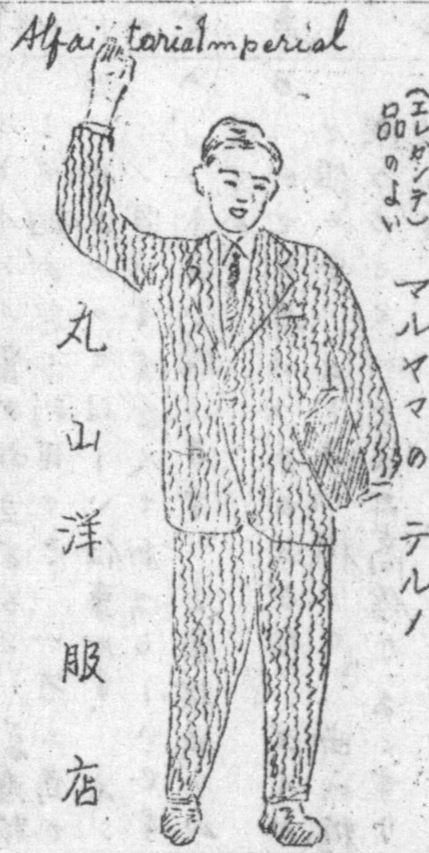 Alfaiataria Imperial
(エレガンテ)
品のよい
マルヤマの テルノ
丸山洋服店